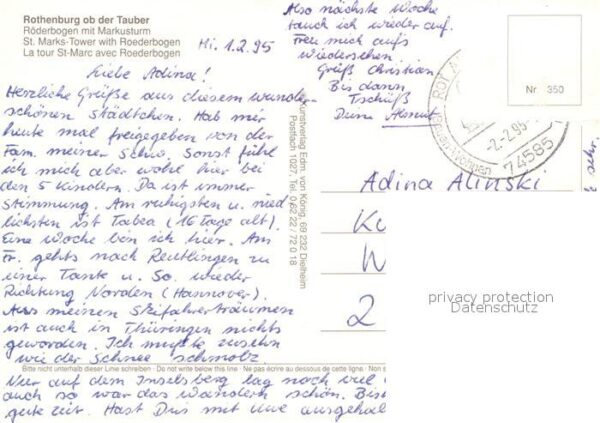 Rothenburg ob der Tauber
Röderbogen mit Markusturm
St. Marks-Tower with Roederbogen
La tour St-Marc avec Roederbogen
Mi. 1.2.95
Liebe Adina!
Herzliche Grüße aus diesem wunder-
schönen Städtchen. Hab mir
heute mal freigegeben von der
Fam. meiner Schw. Sonst fühl
ich mich aber wohl hier bei
den 5 Kindern. Da ist immer
Stimmung. Am ruhigsten u. nied
lichsten ist Tabea (16 Tage alt).
Eine Woche bin ich hier. Am
Fr. gehts nach Reutlingen zu
einer Tante u. So. wieder
Richtung Norden (Hannover).
Aus meinen Skifahrerträumen
ist auch in Thüringen nichts
geworden. Ich mußte zusehn
wie der Schnee schmolz.
Bitte nicht unterhalb dieser Linie schreiben · Do not write below this line · Ne pas écrire au dessous de cette ligne · Non s
Nur auf dem Inselsberg lag noch viel
auch so war das Wandern schön. Bist
gute Zeit. Hast Du's mit Uwe ausgehal
Also nächste Woche
tauch ich wieder auf.
Freu mich aufs
wiedersehen
Grüß Christian
Bis dann
Tschüß
Deine Almut
Kunstverlag Edm. von König, 69 232 Dielheim
Postfach 1027, Tel. 0 62 22 / 72 0 18
Nr. 350
-2.-2.95
74585
sehr.
Adina Alinski
K
W
2
privacy protection
Datenschutz